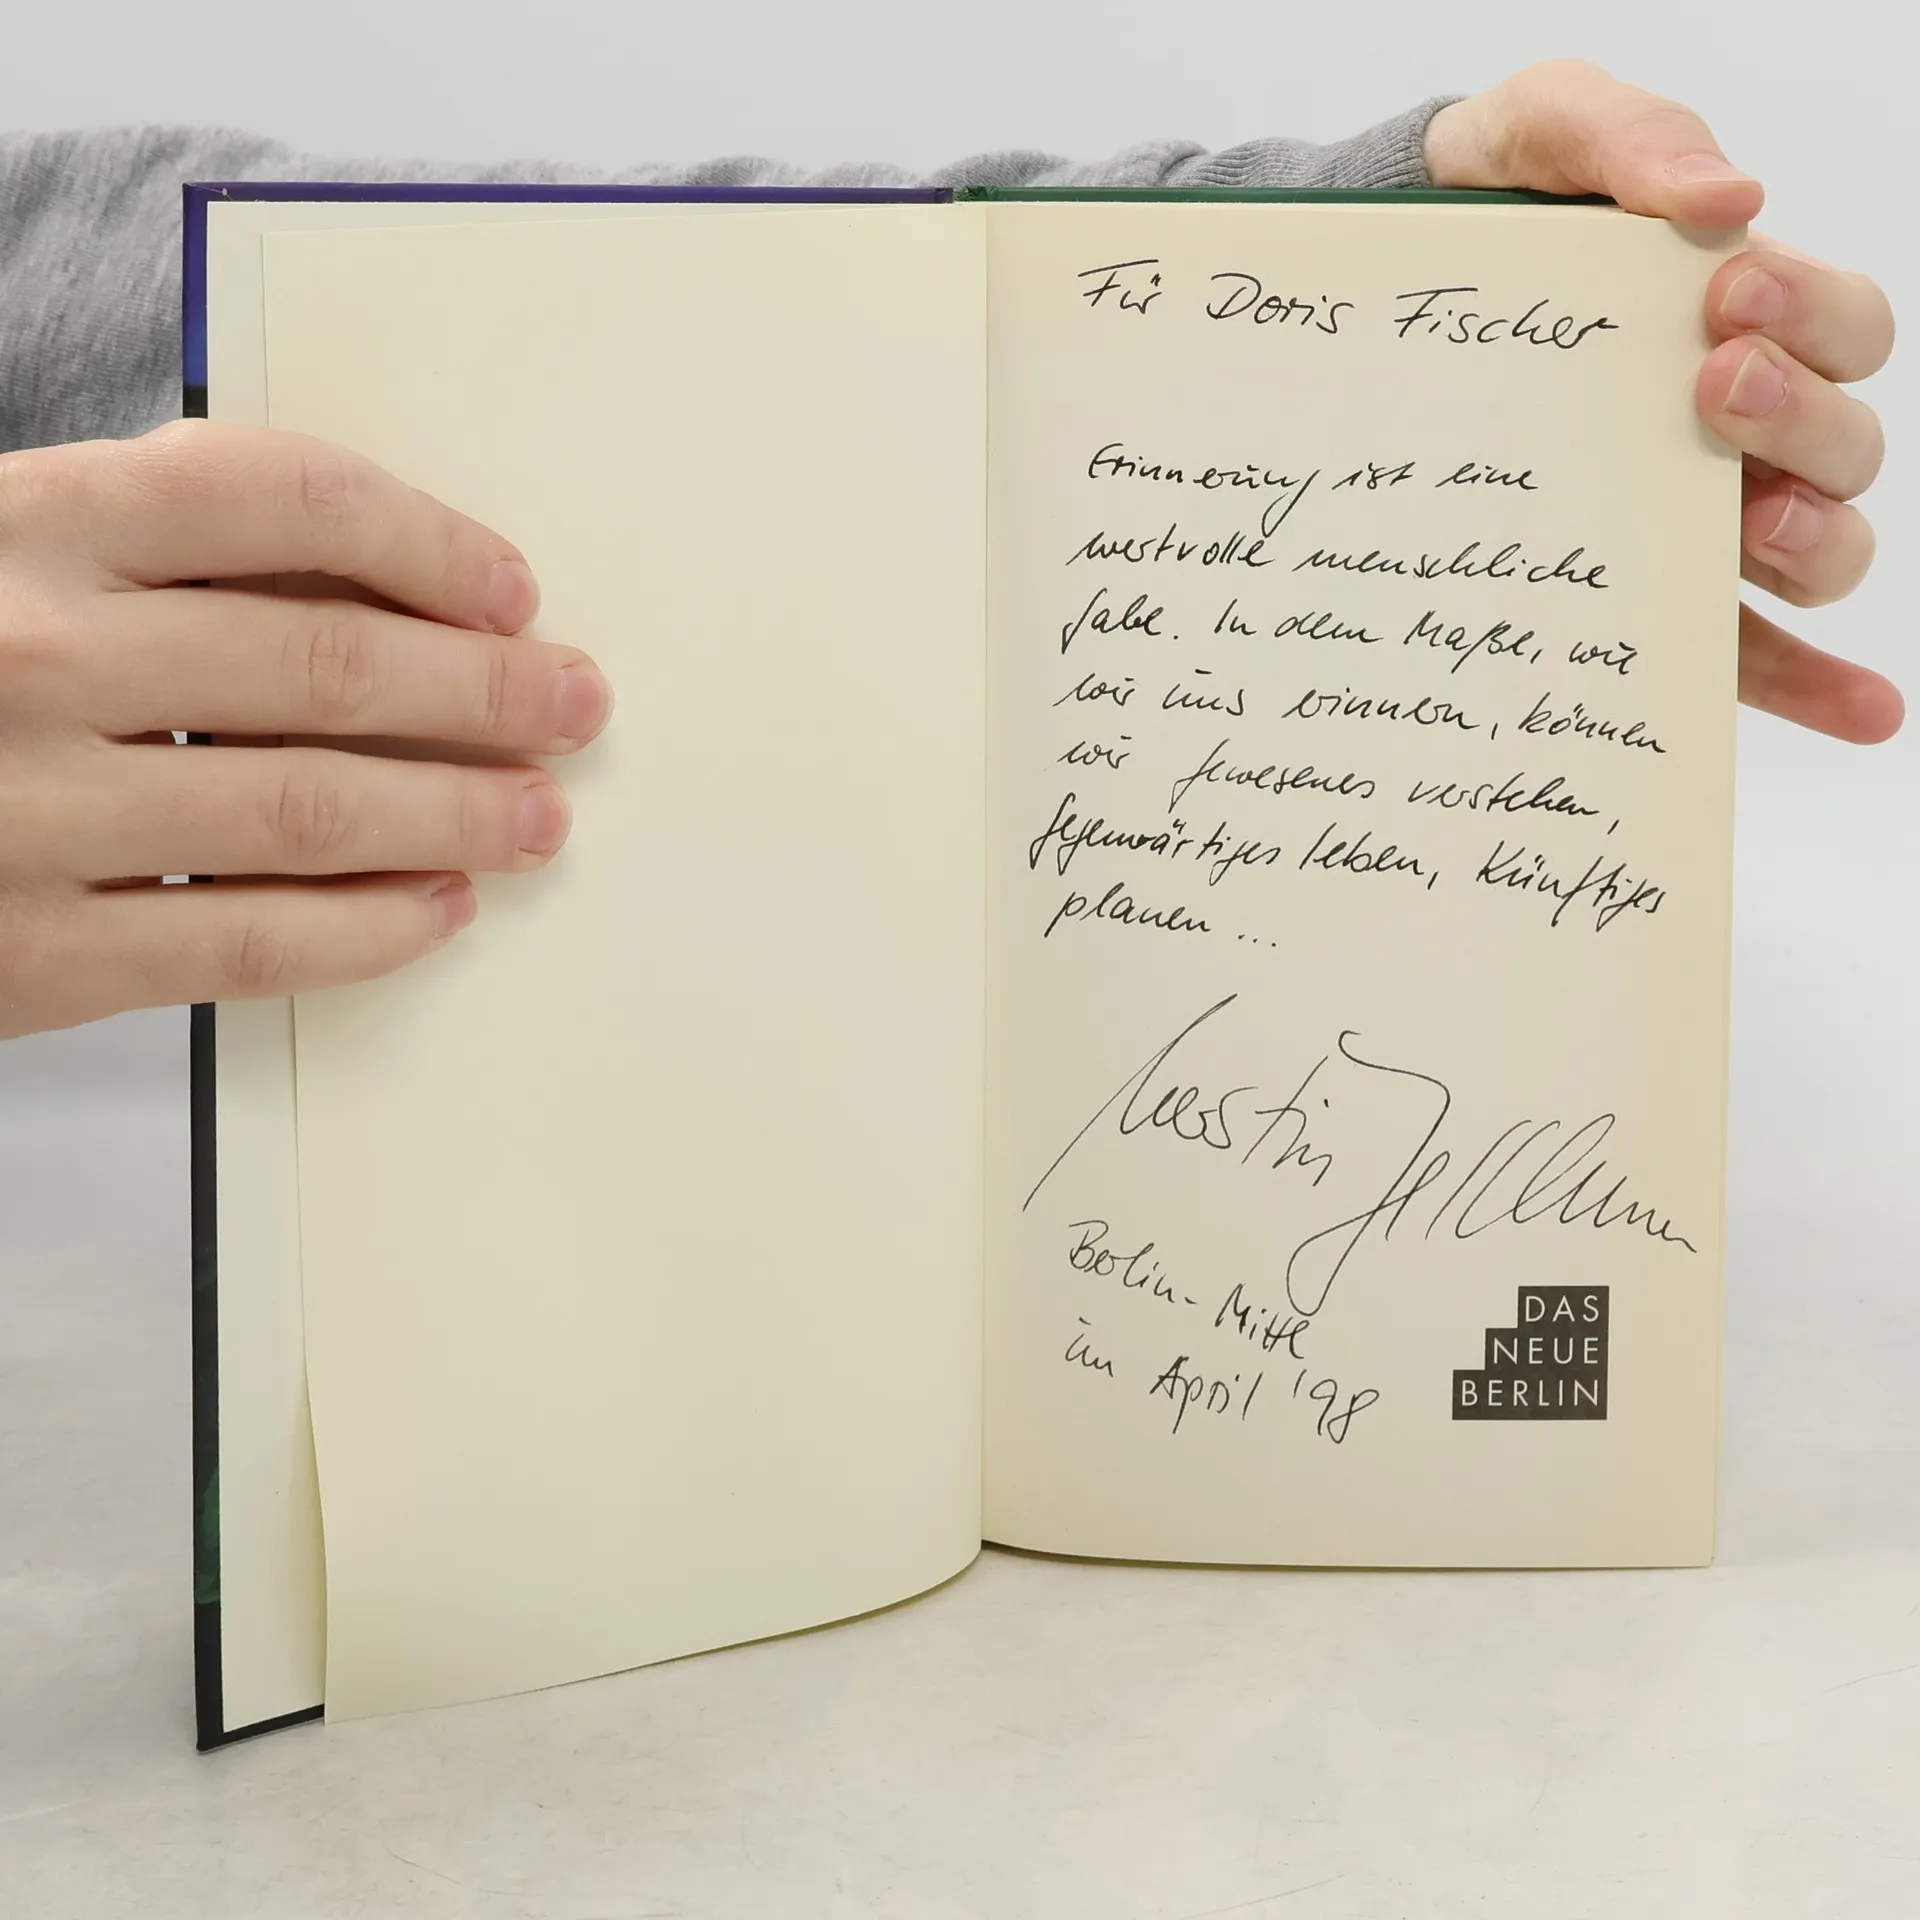 Für Doris Fischer
Erinnerung ist eine
wertvolle menschliche
Gabe. In dem Maße, wie
wir uns erinnern, können
wir Gewesenes verstehen,
Gegenwärtiges leben, Künftiges
planen ...
Kerstin
Berlin-Mitte
im April '98
DAS
NEUE
BERLIN